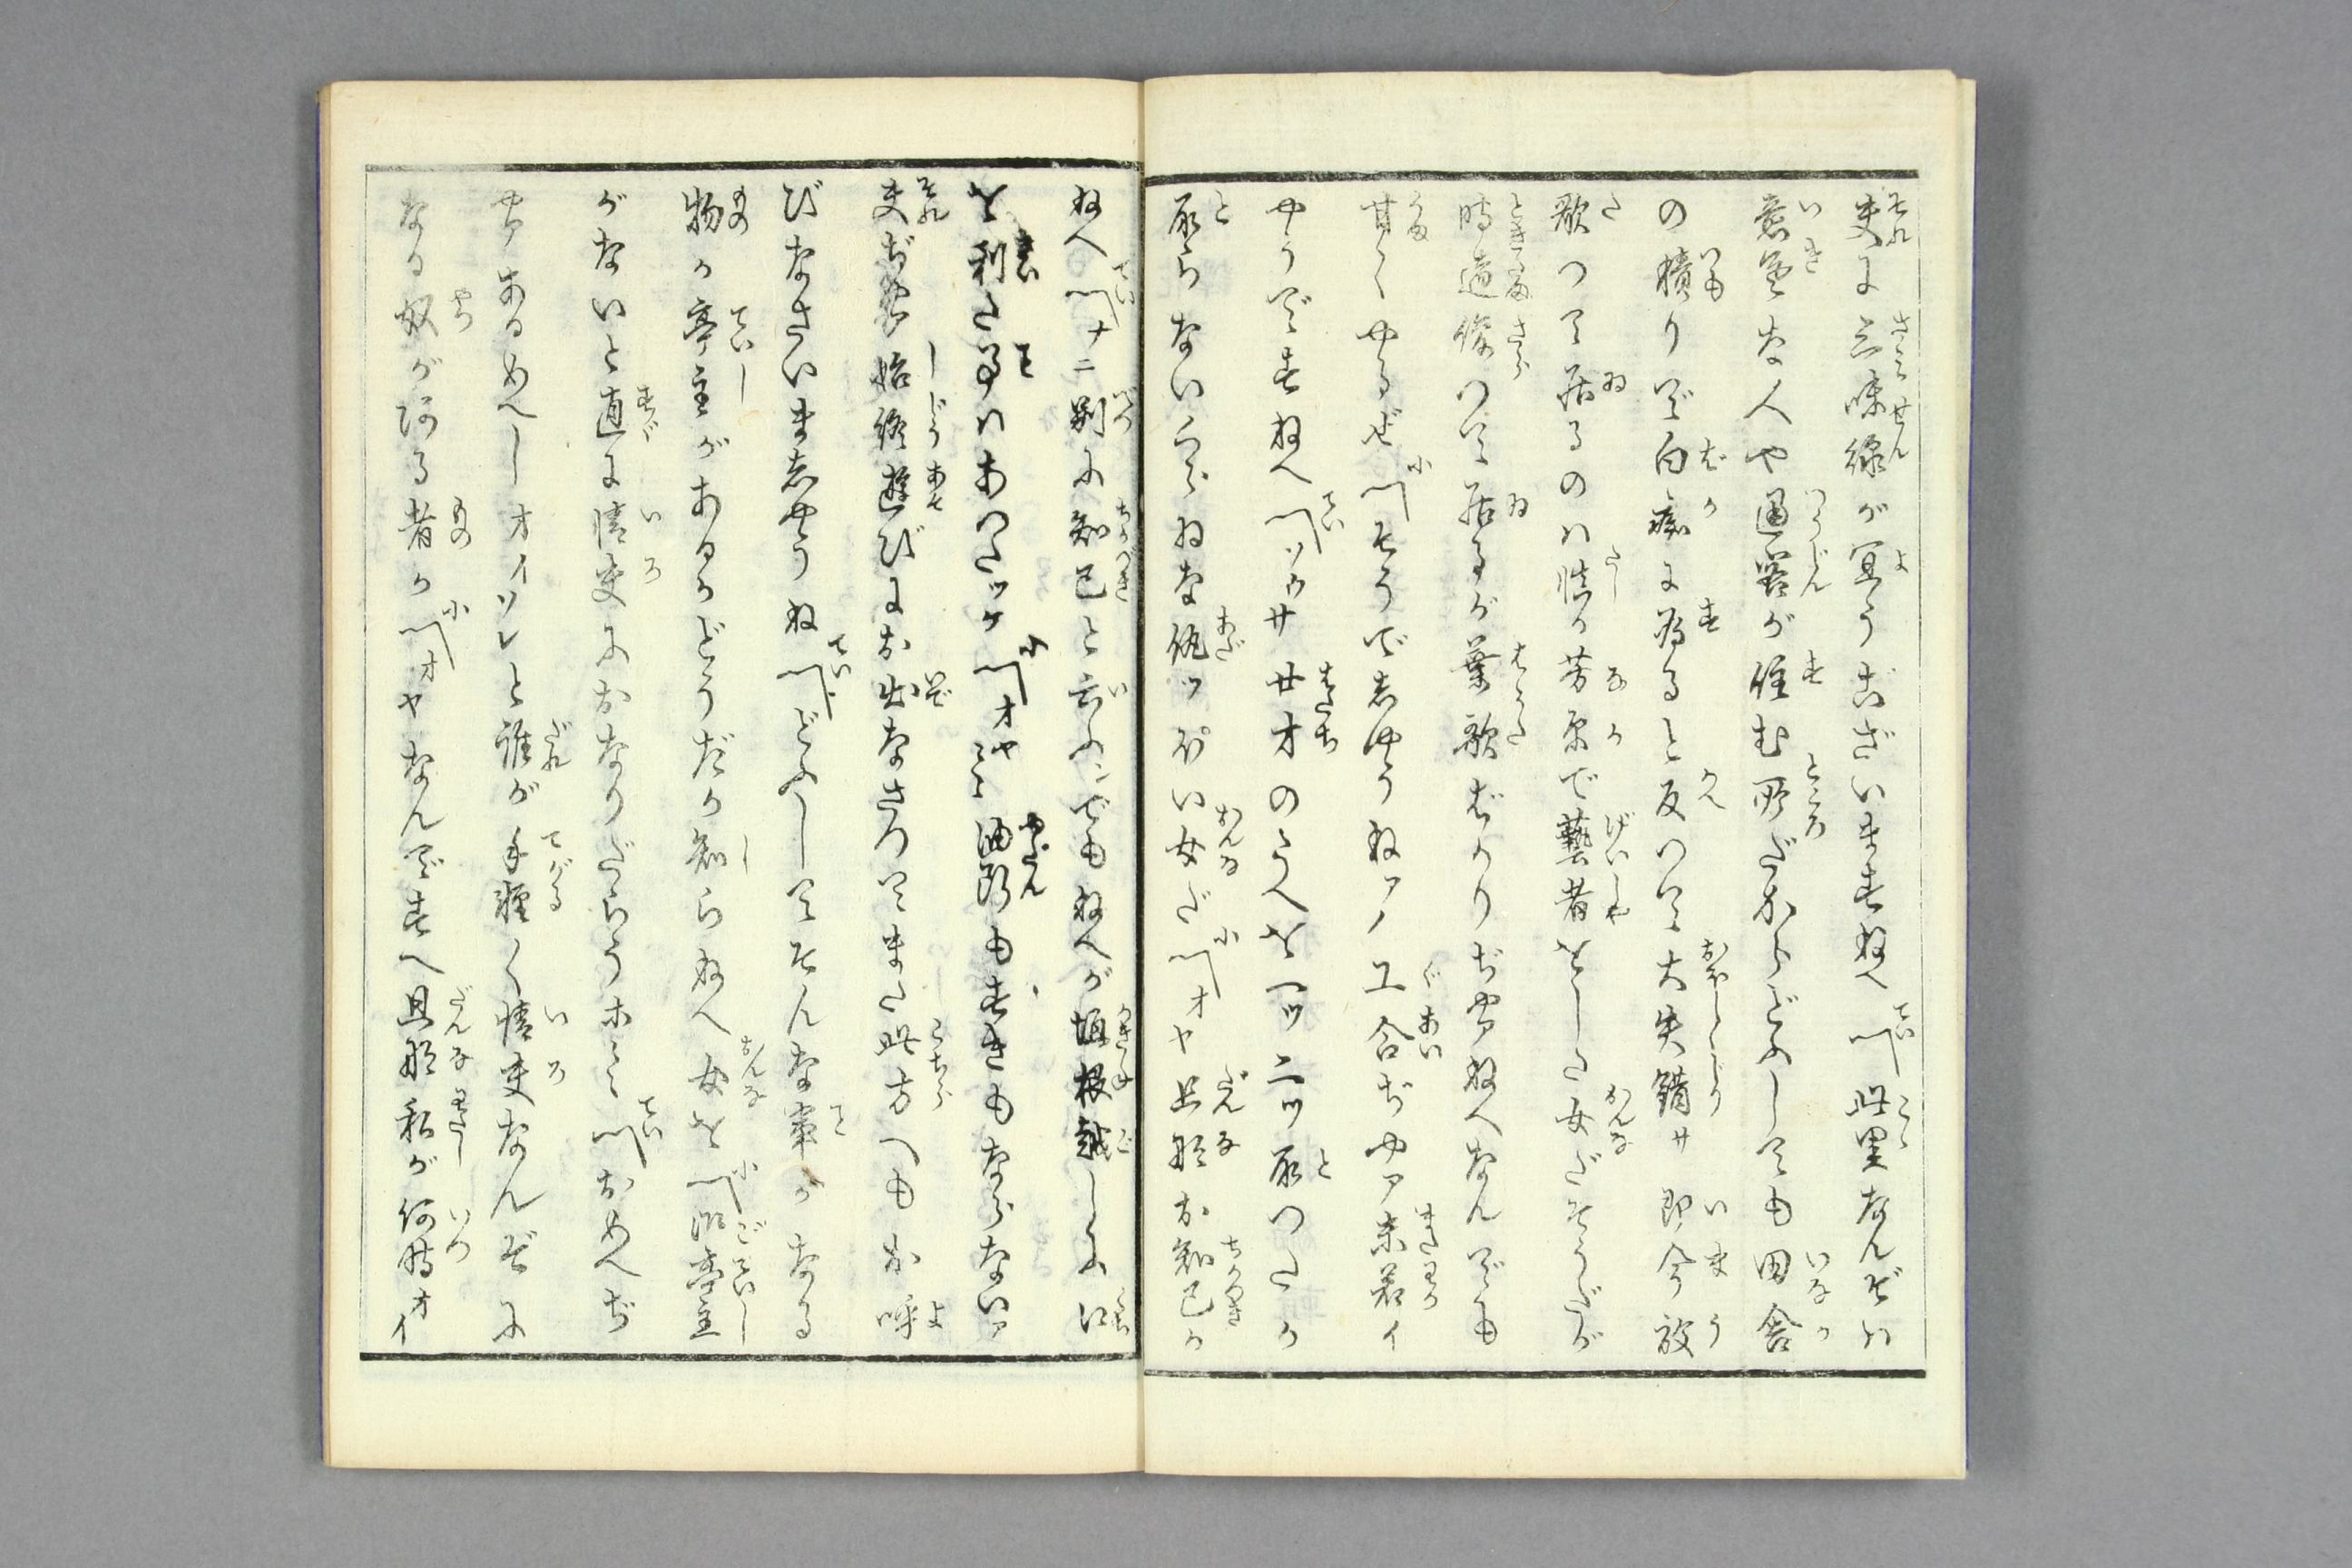 夫に三味線が冝うございますねへ「此里なんぞハ
意気な人や通客が住む所だからどふしても田舎
の積りで白痴に為ると反つて大失錯サ即今放
歌つて居るのハ慥か芳原で藝者をした女だそうだが
時適俊つて居るが葉歌ばかりぢやアねへなんでも
甘くやるぜ「そうでしやうねアノ工合ぢやア未若イ
やうですねへ「ソウサ廿才のうへを一ッ二ッ取つたか
取らないくらゐな仇ッぽい女だ「オヤ旦那お知己か
ねへ「ナニ別に知己と云ふでもねへが垣根越しに口
を利た事ハあつたッケ「オヤ〳〵油断もすきもならないア
夫ぢやア始終遊びにお出なさつてまた此方へもお呼
びなさいましやうね「どふしてそんな事がなる
物か亭主があるかどうだか知らねへ女を「御亭主
がないと直に情夫におなりだらうホヽ「おめへぢ
やアあるめへしオイソレと誰が手軽く情夫なんぞに
なる奴が有る者か「オヤなんですへ旦那私が何時オイ